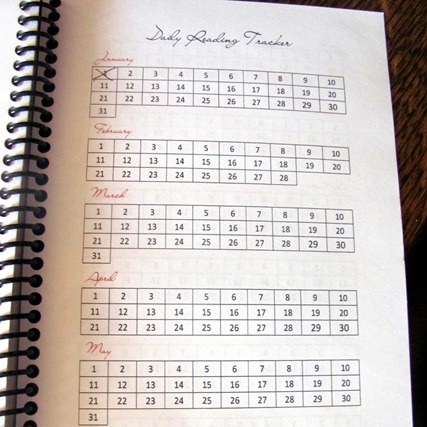 Daily Reading Tracker
January
1 2 3 4 5 6 7 8 9 10
11 12 13 14 15 16 17 18 19 20
21 22 23 24 25 26 27 28 29 30
31
February
1 2 3 4 5 6 7 8 9 10
11 12 13 14 15 16 17 18 19 20
21 22 23 24 25 26 27 28
March
1 2 3 4 5 6 7 8 9 10
11 12 13 14 15 16 17 18 19 20
21 22 23 24 25 26 27 28 29 30
31
April
1 2 3 4 5 6 7 8 9 10
11 12 13 14 15 16 17 18 19 20
21 22 23 24 25 26 27 28 29 30
May
1 2 3 4 5 6 7 8 9 10
11 12 13 14 15 16 17 18 19 20
21 22 23 24 25 26 27 28 29 30
31